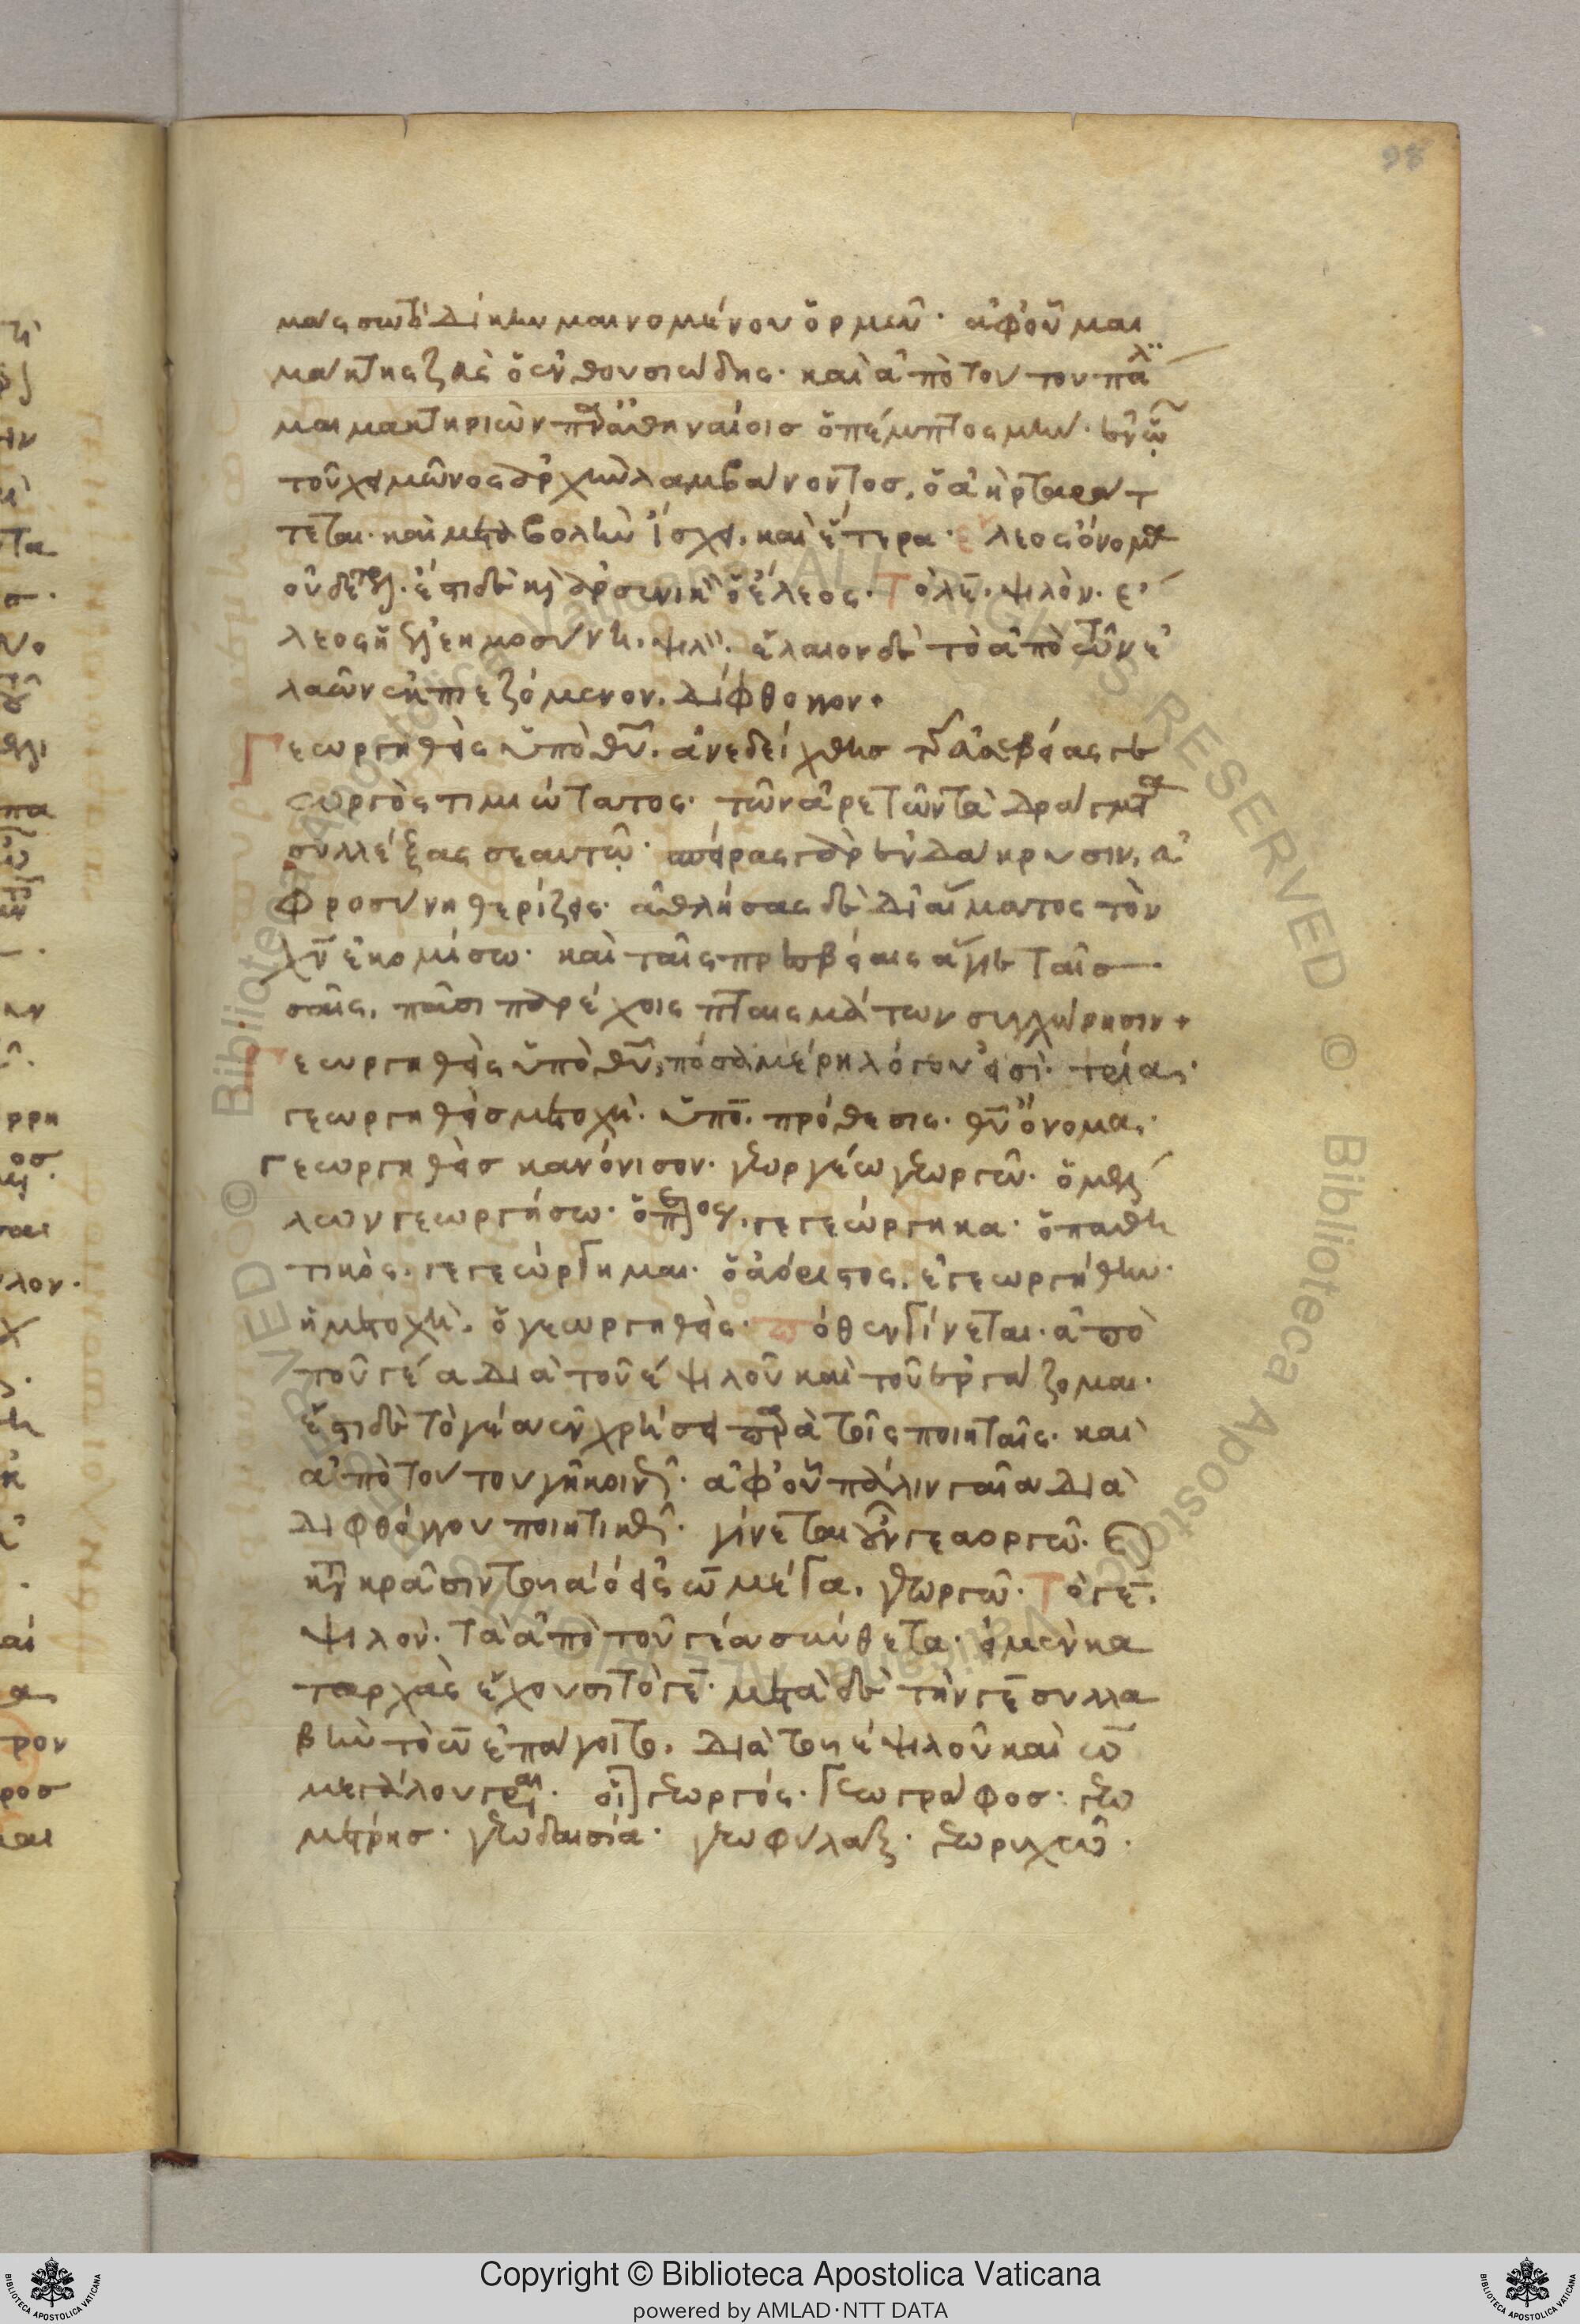 98
μάσσω τὸ δίκην μαινομένου ὁρμῶ· ἀφ' οὗ μαι
μάκτης ζεὺς ὁ ἐνθουσιώδης· καὶ ἀπὸ τούτου πάλ
μαιμακτηριὼν παρ' ἀθηναίοις ὁ πέμπτος μήν· ἐν ᾧ
τοῦ χειμῶνος ἀρχὴν λαμβάνοντος, ὁ ἀὴρ ταράτ
τεται· καὶ μεταβολὴν ἴσχει· καὶ ἕτερα· ἔλεος ὄνομα
οὐδέτερ· ἔστι δὲ καὶ ἀρσενικὸν ὁ ἔλεος· Τὸ λε ψιλόν· ἔ
λεος ἡ ἐλεημοσύνη· ψιλόν· ἔλαιον δὲ τὸ ἀπὸ τῶν ἐ
λαῶν ἐκπιεζόμενον, δίφθογγον +
Γεωργηθεὶς ὑπὸ θυ· ἀνεδείχθης τῆς εὐσεβείας γε
ωργὸς τιμιώτατος· τῶν ἀρετῶν τὰ δράγματα
συλλέξας σεαυτῷ· σπείρας γὰρ ἐν δάκρυσιν, εὐ
φροσύνη θερίζεις· ἀθλήσας δὲ δι' αἵματος τὸν
χν ἐκομίσω· καὶ ταῖς πρεσβείαις ἅγιε ταῖς
σαῖς, πᾶσι παρέχοις πταισμάτων συγχώρησιν +
Γεωργηθεὶς ὑπὸ θυ, πόσα μέρη λόγου εἰσί· τρία·
γεωργηθεὶς μετοχή· ὑπο πρόθεσις· θυ ὄνομα·
Γεωργηθεὶς κανόνισον· γεωργέω γεωργῶ· ὁ μέλ
λων γεωργήσω· ὁ παρακείμενος, γεγεώργηκα· ὁ παθη
τικὸς, γεγεώργημαι· ὁ ἀόριστος, ἐγεωργήθην·
ἡ μετοχὴ, ὁ γεωργηθείς· πόθεν γίνεται· ἀπὸ
τοῦ γέα διὰ τοῦ ε ψιλοῦ καὶ τοῦ ἐργάζομαι·
ἔστι δὲ τὸ γέα ἐν χρήσει παρὰ τοῖς ποιηταῖς· καὶ
ἀπὸ τούτου γῆ κοινῶς· ἀφ' οὗ πάλιν γαῖα διὰ
διφθόγγου ποιητικῶς· γίνεται οὖν γεαοργῶ· καὶ
κατὰ κρᾶσιν τοῦ α ο εἰς ω μέγα, γεωργῶ· Τὸ γε
ψιλόν· Τὰ ἀπὸ τοῦ γέα σύνθετα· εἰ μὲν κα
ταρχὰς ἔχουσι τὸ γε· μετὰ δὲ τὴν γε συλλα
βὴν τὸ ω ἐπάγοιτο, διὰ τοῦ ε ψιλοῦ καὶ ω
μεγάλου γράφεται· οἷον γεωργός· γεωγράφος· γεω
μέτρης· γεωδαισία· γεωφύλαξ· γεωρυχῶ·
Copyright © Biblioteca Apostolica Vaticana
powered by AMLAD·NTT DATA